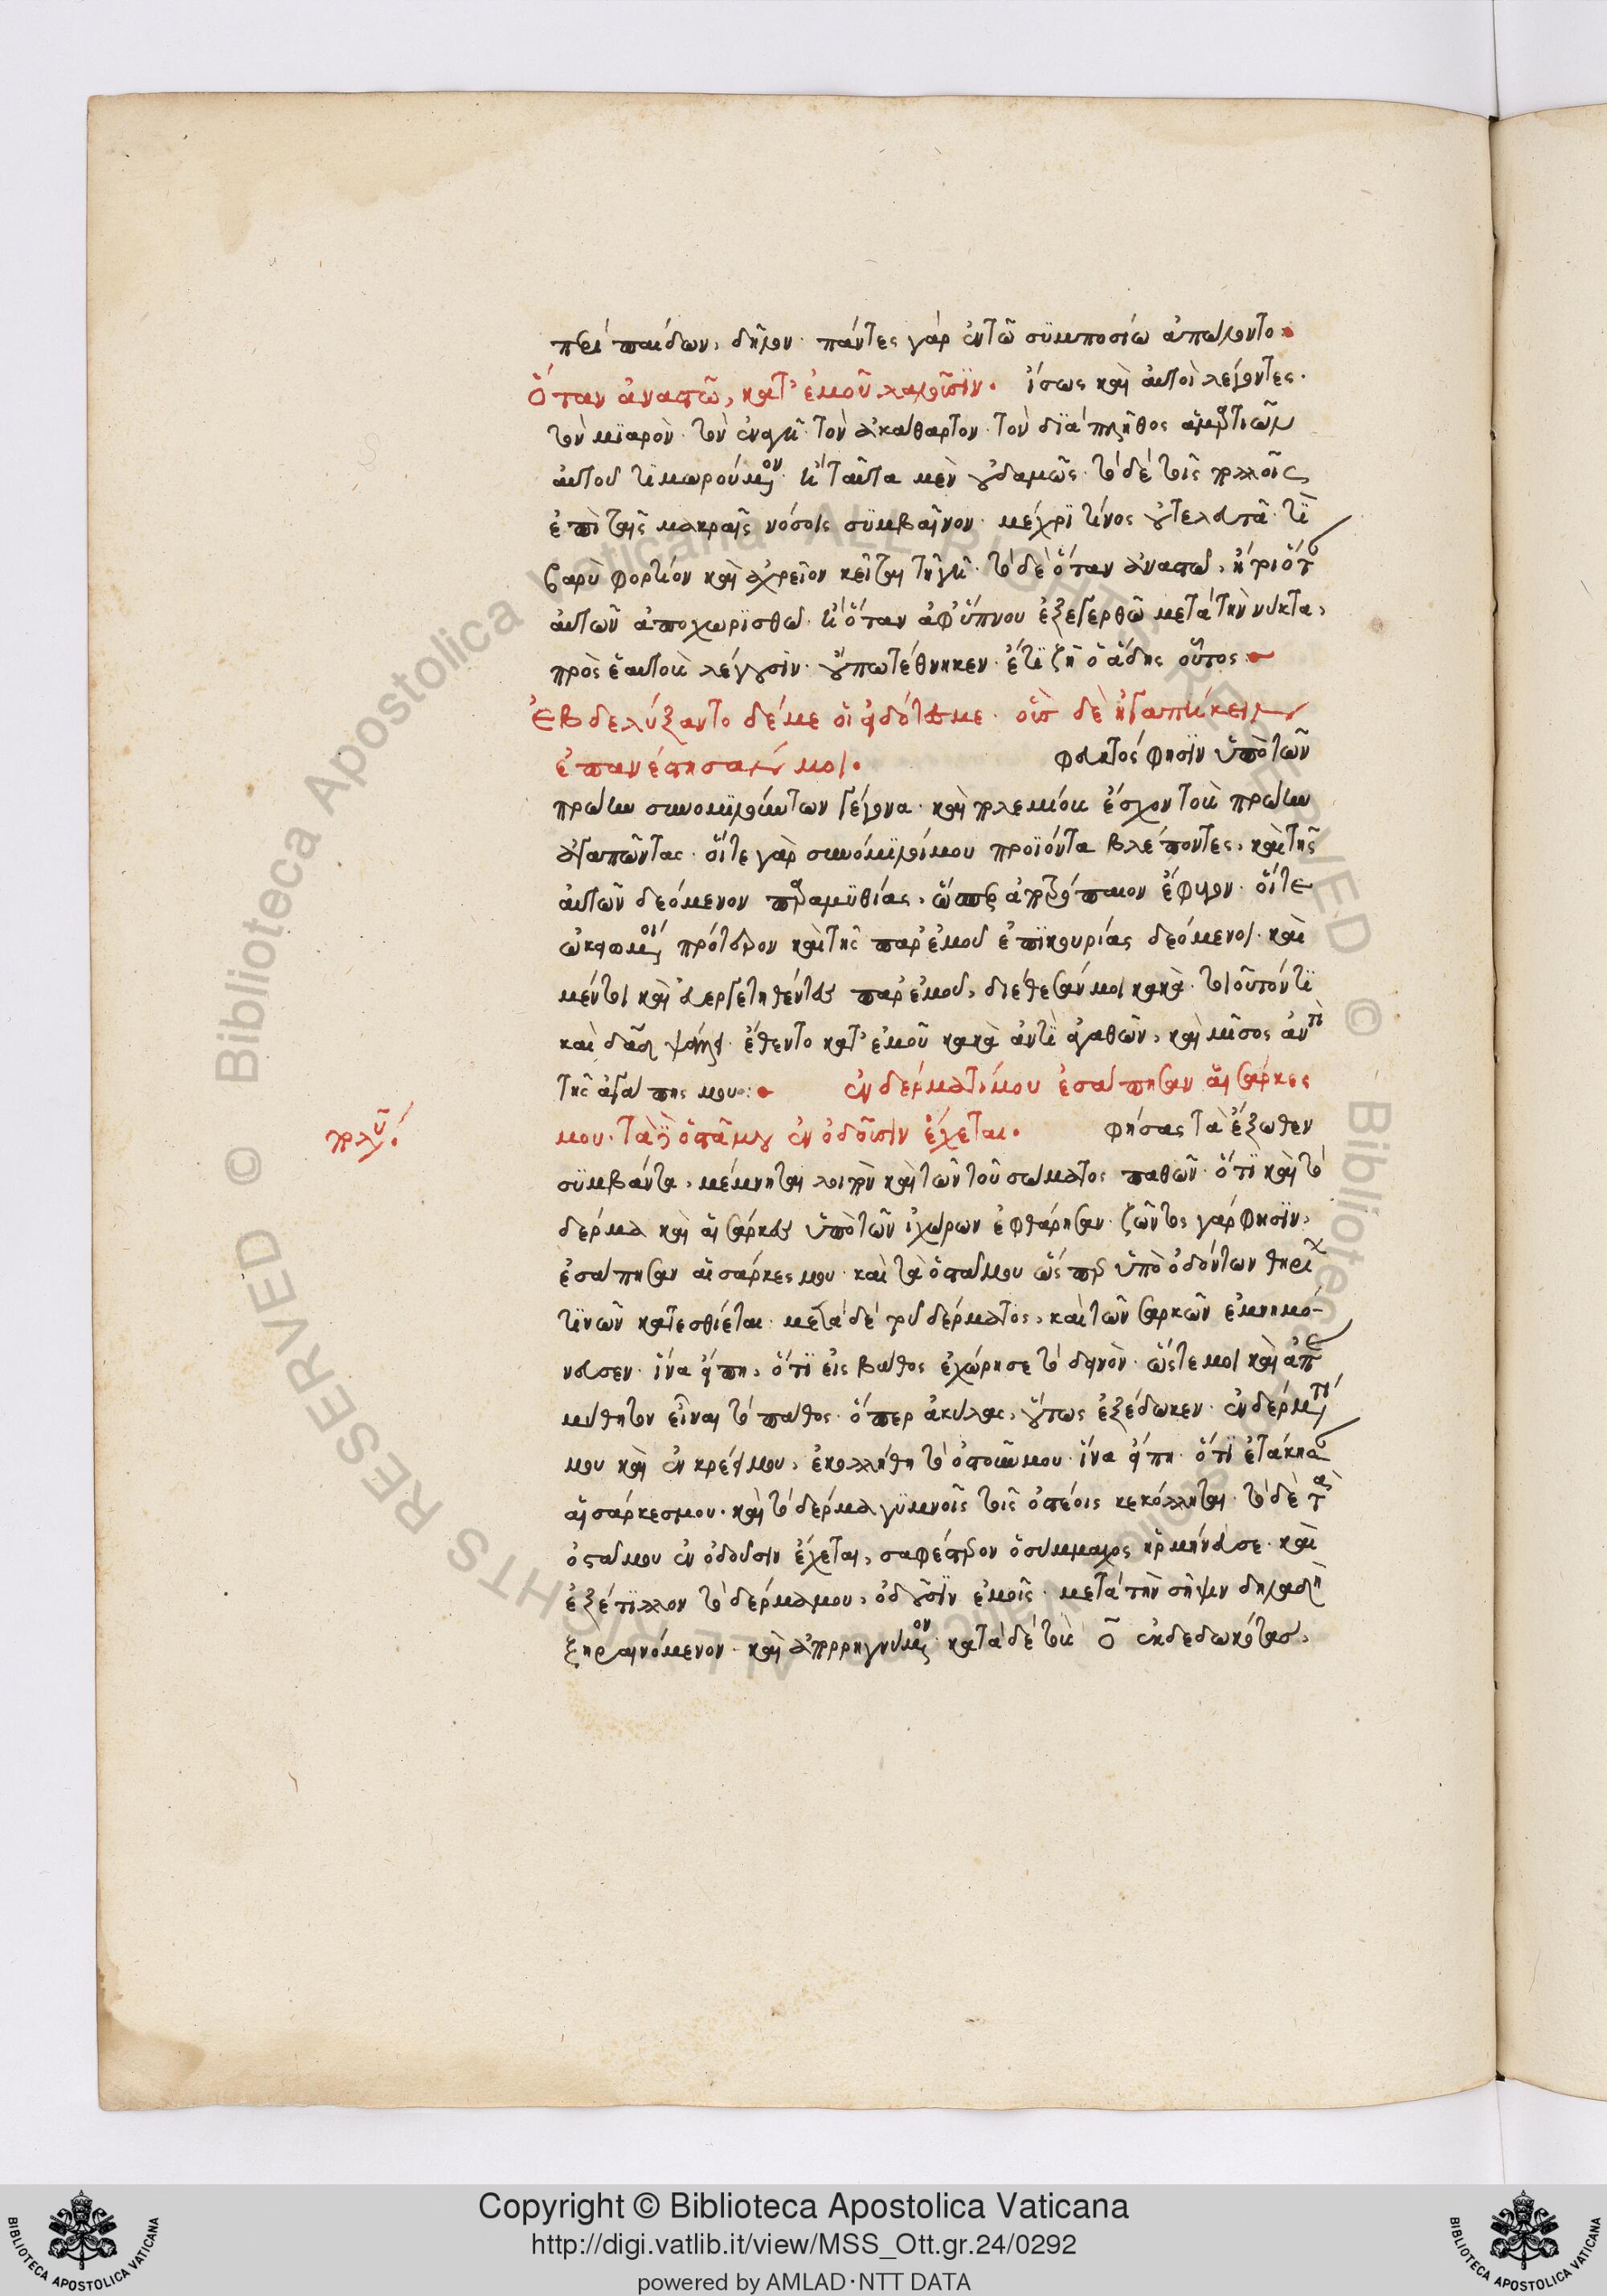 περὶ παίδων, δῆλον· πάντες γὰρ ἐν τῶ συμποσίω ἀπώλοντο·
Ὅταν ἀναστῶ, κατ' ἐμοῦ λαλοῦσϊν· ἴσως καὶ αὐτοὶ λέγοντες·
τὸν μϊαρὸν· τὸν ἐναγῆ· τὸν ἀκάθαρτον· τὸν δϊὰ πλῆθος ἁμαρτιῶν
αὐτοῦ τϊμωρούμενον· ἢ ταῦτα μὲν οὐδαμῶς· τὸ δὲ τοῖς πολλοῖς
ἐπὶ ταῖς μακραῖς νόσοις συμβαῖνον· μέχρϊ τίνος οὐ τελευτᾶ· τϊ
βαρὺ φορτίον καὶ ἀχρεῖον κεῖται τῆ γῆ· τὸ δὲ ὅταν ἀναστῶ, ἤτοι ὅτ
αὐτῶν ἀποχωρϊσθῶ· ἢ ὅταν ἀφ' ὕπνου ἐξεγερθῶ μετὰ τὴν νύκτα,
πρὸς ἑαυτοὺς λέγουσϊν· οὔπω τέθνηκεν· ἔτϊ ζῆ ὁ ἄδης οὗτος·
Ἐβδελύξαντο δέ με οἱ εἰδότες με· οὓς δὲ ἠγαπήκειν
ἐπανέστησάν μοι· φευκτός φησϊν ὑπὸ τῶν
πρώην συνομϊλούντων γέγονα· καὶ πολεμίους ἔσχον τοὺς πρώην
ἀγαπῶντας· οἵ τε γὰρ συνόμϊλοί μου προϊόντα βλέποντες, καὶ τῆς
αὐτῶν δεόμενον παραμϋθίας, ὥσπερ ἀπρόοπτον ἔφυγον· οἵ τε
ᾠκειωμένοι πρότερον καὶ τῆς παρ' ἐμοῦ ἐπϊκουρίας δεόμενοι· καὶ
μέντοι καὶ εὐεργετηθέντες παρ' ἐμοῦ, διέθεσάν μοι κακὰ· τοιοῦτόν τϊ
καὶ δαδ ψάλλει· ἔθεντο κατ' ἐμοῦ κακὰ ἀντϊ ἀγαθῶν, καὶ μῖσος ἀντὶ
τῆς ἀγάπης μου:· ἐν δέρματί μου ἐσάπησαν αἱ σάρκες
μου· τὰ δὲ ὀστᾶ μου ἐν ὀδοῦσιν ἔχεται· φήσας τὰ ἔξωθεν
πολυ·
συμβάντα, μέμνηται λοιπὸν καὶ τῶν τοῦ σώματος παθῶν· ὅτϊ καὶ τὸ
δέρμα καὶ αἱ σάρκες ὑπὸ τῶν ἰχώρων ἐφθάρησαν· ζῶντος γάρ φησϊν,
ἐσάπησαν αἱ σάρκες μου· καὶ τὰ ὀστᾶ μου ὥσπερ ὑπὸ ὀδόντων θηρϊ
τϊνῶν κατεσθίεται· μετὰ δὲ τοῦ δέρματος, καὶ τῶν σαρκῶν ἐμνημό-
νευσεν· ἵνα εἴπη, ὅτϊ εἰς βάθος ἐχώρησε τὸ δεινὸν· ὥστε μοι καὶ ἀπα
μύθητον εἶναι τὸ πάθος· ὅπερ ἀκύλας, οὕτως ἐξέδωκεν· ἐν δέρματί
μου καὶ ἐν κρέει μου, ἐκολλήθη τὸ ὀστοῦν μου· ἵνα εἴπη· ὅτϊ ἐτάκησαν
αἱ σάρκες μου· καὶ τὸ δέρμα γϋμνοῖς τοῖς ὀστέοις κεκόλληται· τὸ δὲ τὰ
ὀστᾶ μου ἐν ὀδοῦσιν ἔχεται, σαφέστερον ὁ σύμμαχος ἡρμήνευσε· καὶ
ἐξέτϊλλον τὸ δέρμα μου, ὀδοῦσϊν ἐμοῖς· μετὰ τὴν σῆψιν δηλαδὴ
ξηραινόμενον· καὶ ἀπορρηγνύμενον· κατὰ δὲ τοὺς ο ἐκδεδωκότας,
Copyright © Biblioteca Apostolica Vaticana
http://digi.vatlib.it/view/MSS_Ott.gr.24/0292
powered by AMLAD·NTT DATA